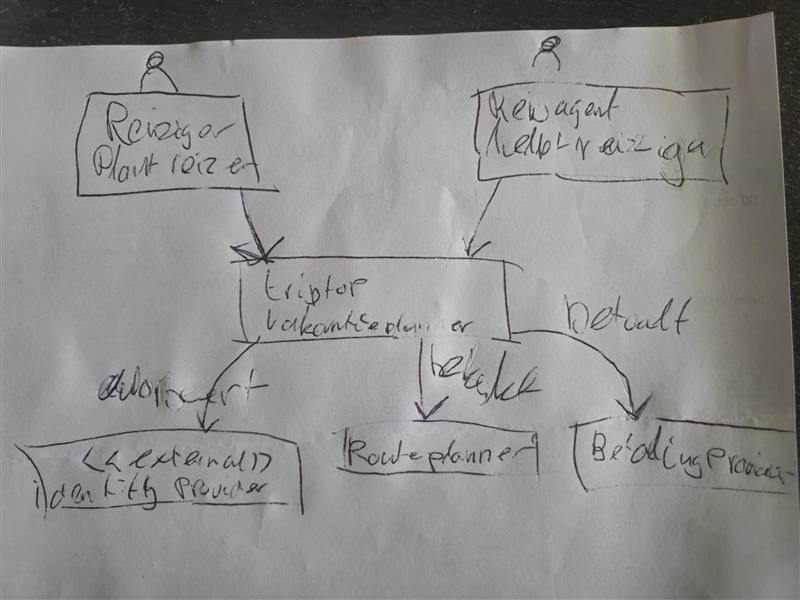 Reiziger
Plant reizen
Reisagent
helpt reiziger
triptop
vakantieplanner
betaalt
bekijkt
<<external>>
identity provider
Routeplanner
Betalingprovider